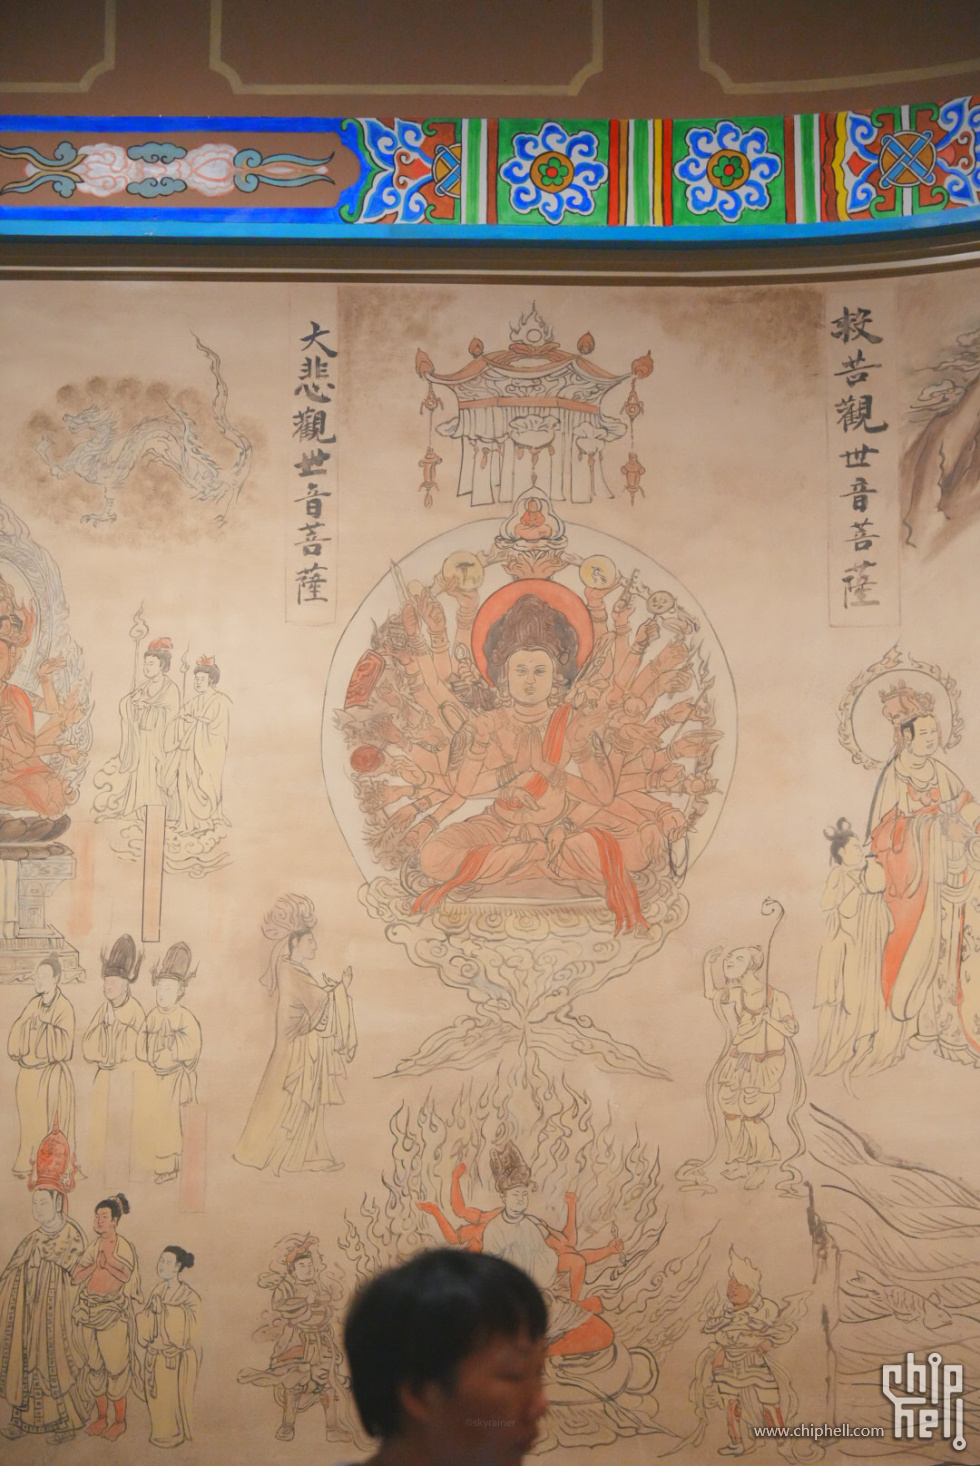 大悲觀世音菩薩
救苦觀世音菩薩
©skyrainer
chip
hell
www.chiphell.com